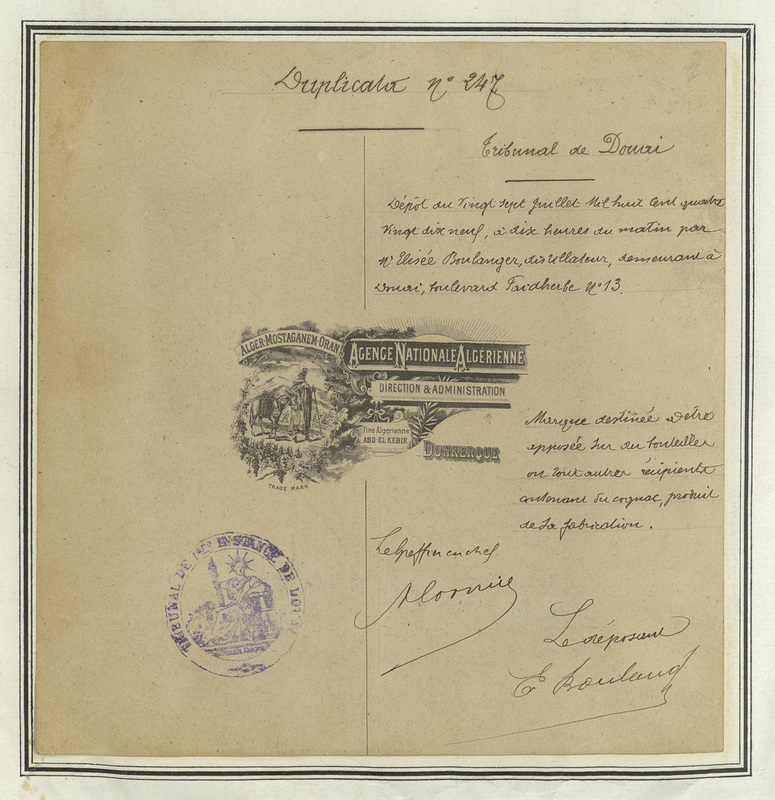 Duplicata n° 247
Tribunal de Douai
Dépôt du Vingt Sept Juillet Mil huit Cent quatre
Vingt dix neuf, à dix heures du matin par
Mr Elisée Boulanger, distillateur, demeurant à
Douai, boulevard Faidherbe N° 13.
ALGER-MOSTAGANEM-ORAN
AGENCE NATIONALE ALGÉRIENNE
DIRECTION & ADMINISTRATION
Fine Algérienne
ABD-EL-KÉBIR
DUNKERQUE
TRADE MARK
Marque destinée à être
apposée sur des bouteilles
ou tout autres récipients
contenant du cognac, produit
de sa fabrication.
Le Greffier en chef
TRIBUNAL DE 1ERE INSTANCE DE DOUAI
Le déposant
E Boulang